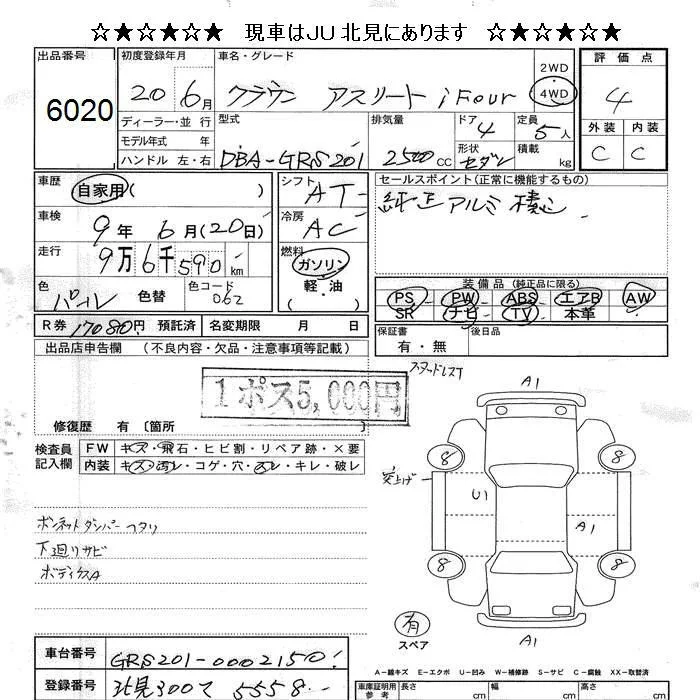 ☆★☆★☆★ 現車はJU北見にあります ☆★☆★☆★
出品番号 6020
初度登録年月 20 6月
車名・グレード クラウン アスリート i Four
2WD
4WD
評価点 4
外装 C 内装 C
ディーラー・並行
モデル年式 年
ハンドル 左・右
型式 DBA-GRS201
排気量 2500CC
ドア 4
形状 セダン
定員 5人
積載 kg
車歴 自家用 ( )
シフト AT
車検 9年 6月(20日)
冷房 AC
走行 9万6千590km
燃料 ガソリン
軽・油 ( )
色 パール 色替
色コード 062
セールスポイント(正常に機能するもの)
純正アルミ積込
装備品 (純正品に限る)
PS PW ABS エアB AW
SR ナビ TV 本革
保証書 有・無
後日品
R券 17080円 預託済 名変期限 月 日
出品店申告欄 (不良内容・欠品・注意事項等記載)
1ポス5,000円
修復歴 有 〔箇所
検査員記入欄
FW キズ・飛石・ヒビ割・リペア跡・×要
内装 キズ・汚レ・コゲ・穴・スレ・キレ・破レ
ボンネットダンパーヘタリ
下廻りサビ
ボディクスA
スタッドレスT
A1
8 8
突上げ
U1
A1
8 8
有
スペア
A1
車台番号 GRS201-0002150
登録番号 北見300て 5558
A－線キズ E－エクボ U－凹み W－補修跡 S－サビ C－腐蝕 XX－取替済
車庫証明用参考 長さ cm 幅 cm 高さ cm